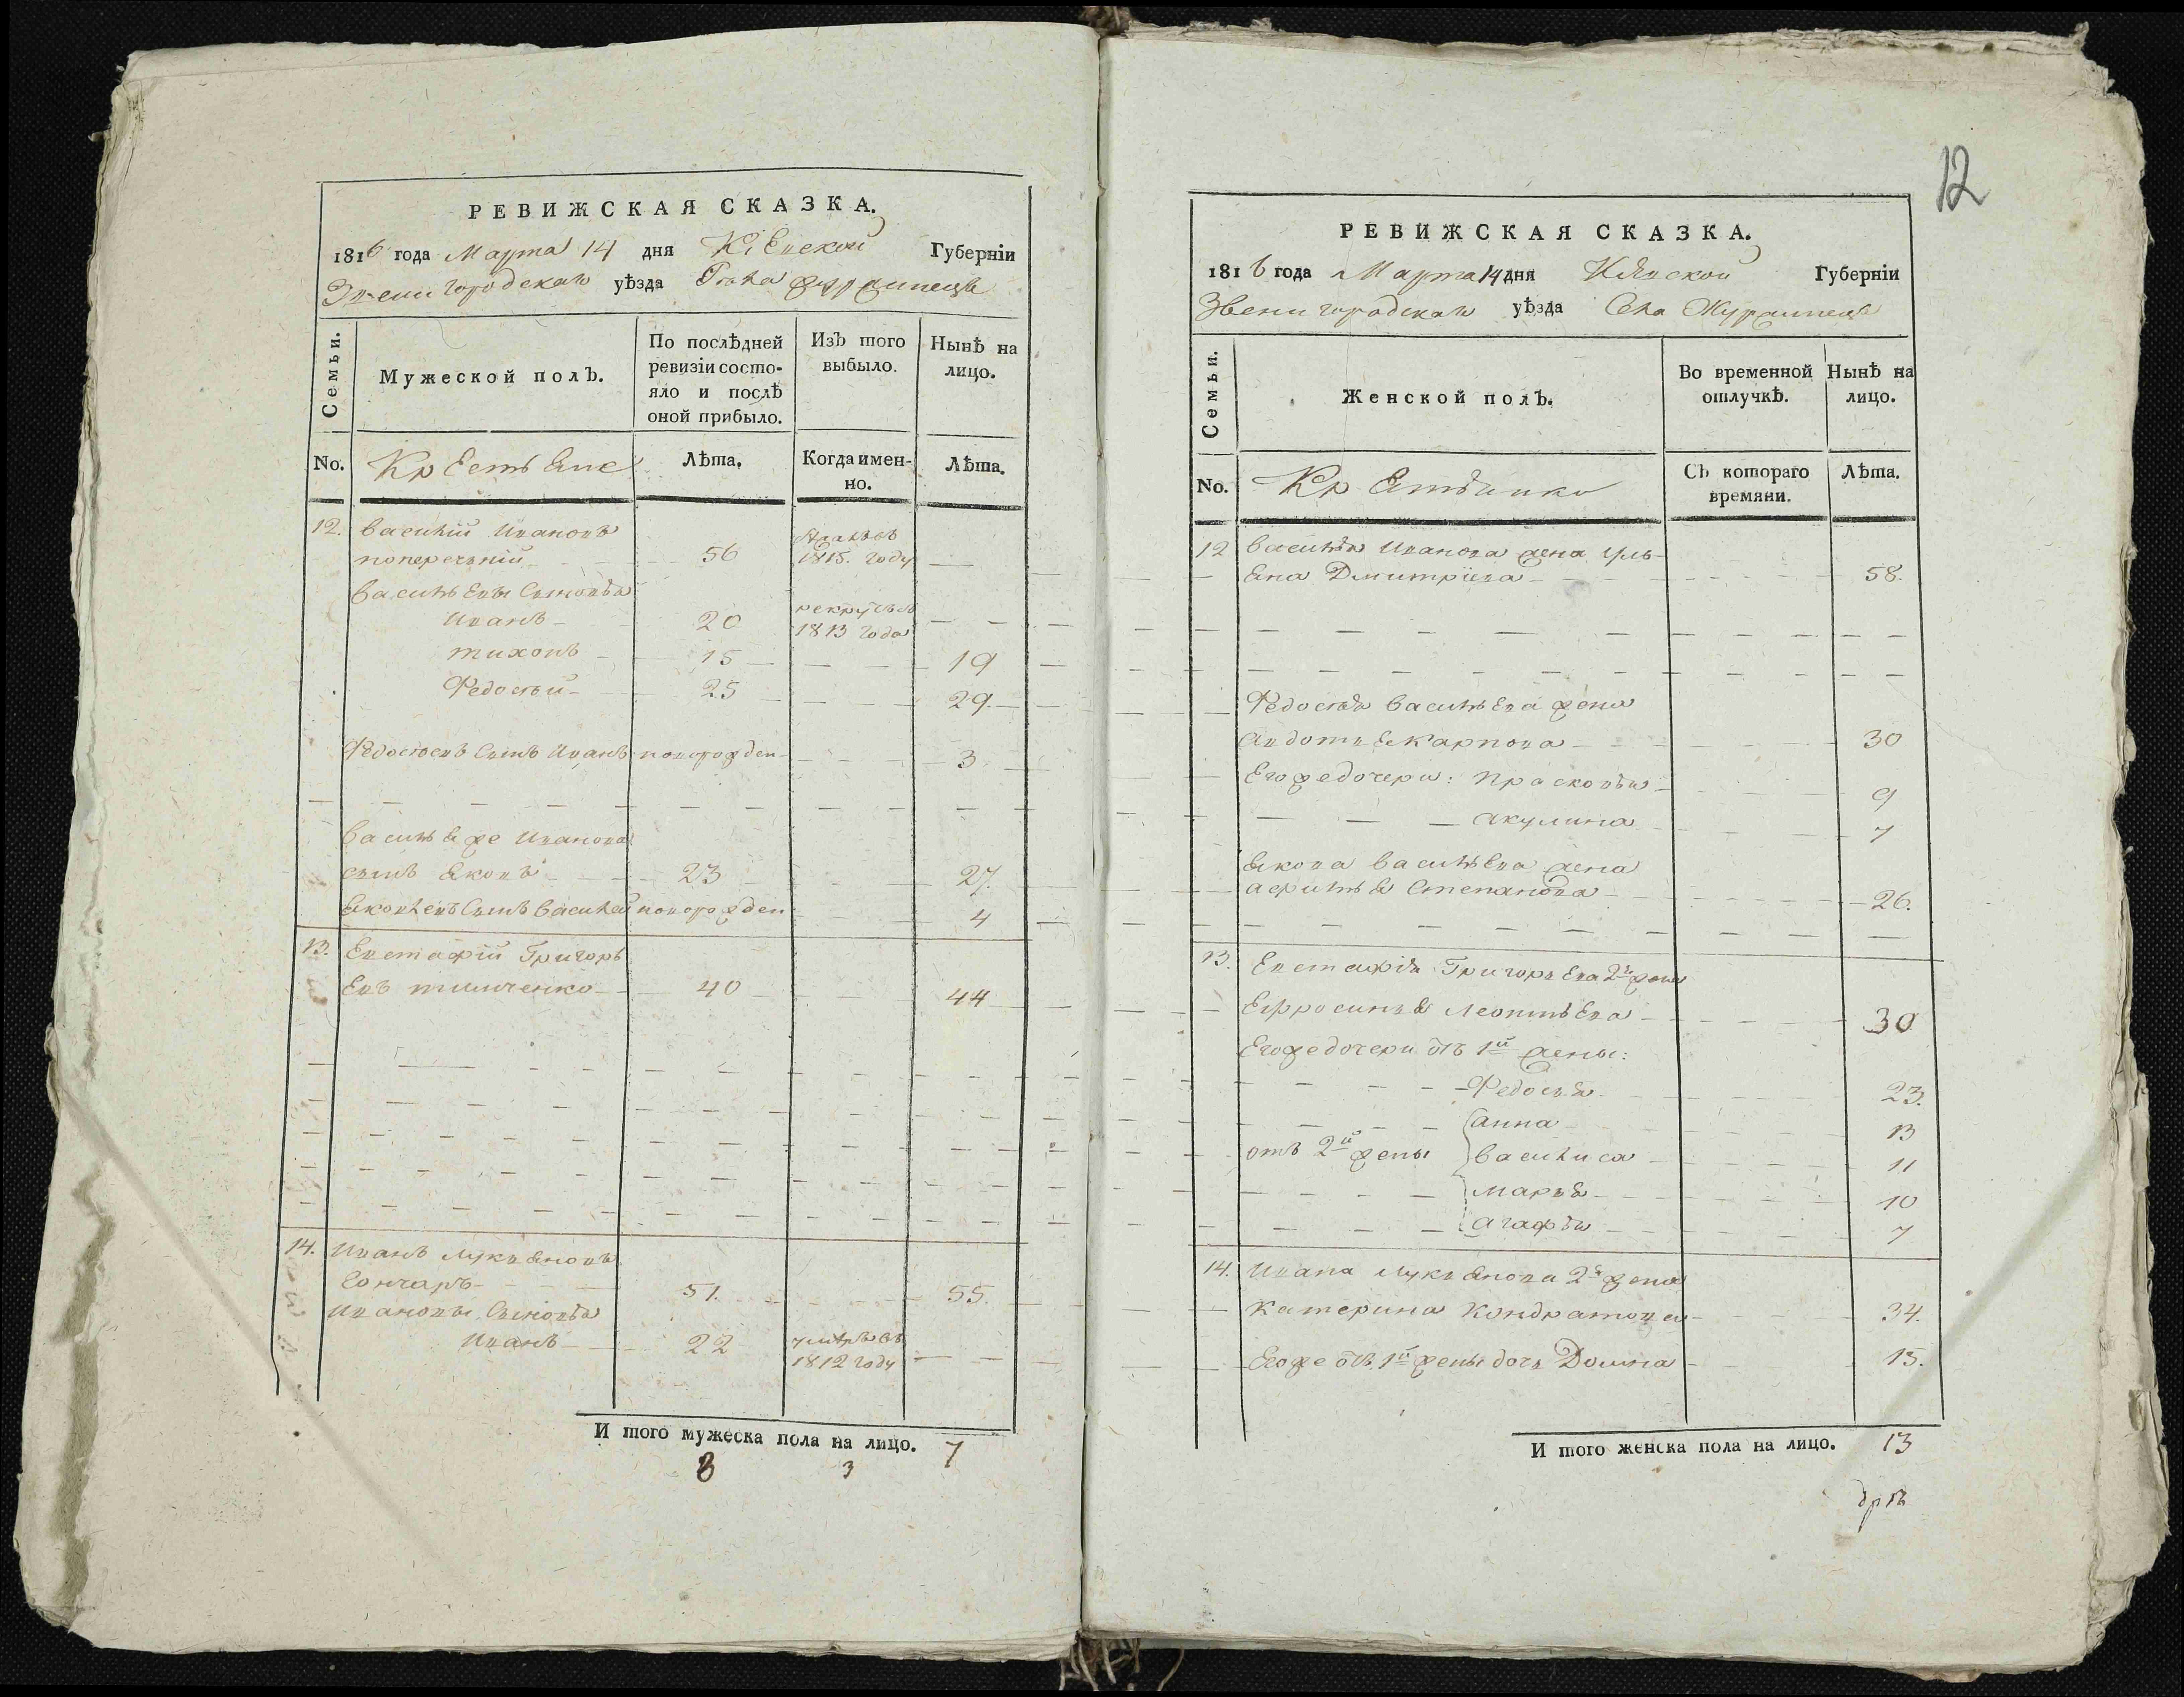 РЕВИЖСКАЯ СКАЗКА.
1816 года Марта 14 дня Кіевской Губерніи
Звенигородскаго уѣзда Села Журжинецъ
Семьи.
Мужеской полъ.
По послѣдней ревизіи состояло и послѣ оной прибыло.
Изъ того выбыло.
Нынѣ на лицо.
No. Крестьяне Лѣта. Когда именно. Лѣта.
12. Василій Ивановъ
поперечній 56 1815. году
Васильевы Сыновья
Иванъ 20 рекрутъ 1813 года
тихонъ 15 19
Федосѣй 25 29.
Федосѣевъ Сынъ Иванъ новорожден 3
Василья же Иванова
сынъ Яковъ 23 27.
Яковлевъ Сынъ Василей новорожден 4
13. Евстафій Григорь
евъ тимченко 40 44
14. Иванъ Лукьяновъ
Гончаръ 51. 55.
Ивановы Сыновья
Иванъ 22 умѣръ въ 1812 году
И того мужеска пола на лицо. 7
8 3
12
РЕВИЖСКАЯ СКАЗКА.
1816 года Марта 14 дня Кіевской Губерніи
Звенигородскаго уѣзда Села Журжинецъ
Семьи.
Женской полъ.
Во временной отлучкѣ.
Нынѣ на лицо.
No. Крестьянки Съ котораго времяни. Лѣта.
12 Василья Иванова жена Уль-
яна Дмитріева 58.
Федосѣя Васильева жена
Авдотья Карпова 30
Его же дочери: Прасковья 9
Акулина 7
Якова Васильева жена
Степанова 26.
13. Евстафія Григорьева 2я жена
Ефросинья Леонтьева 30
Его же дочери отъ 1й жены:
Федосья 23.
Анна 13
отъ 2й жены Василиса 11
Марья 10
Агафья 7
14. Ивана Лукьянова 2я жена
Катерина Кондратова 34.
Его же отъ 1й жены дочь Домна 15.
И того женска пола на лицо. 13